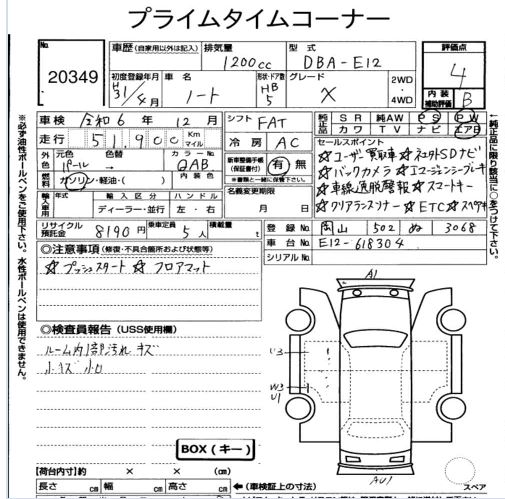 プライムタイムコーナー
No. 20349
車歴 (自家用以外は記入)
排気量 1200cc
型式 DBA-E12
評価点 4
内装補助評価 B
初度登録年月 H31/4月
車名 ノート
形状・ドア数 HB 5
グレード X
2WD・4WD
車検 令和6年12月
シフト FAT
純正品 SR 純AW PS PW
カワ TV ナビ エアB
走行 51,900 Km マイル
冷房 AC
セールスポイント
☆ユーザー買取車☆ネコタSDナビ
☆バックカメラ☆エマージェンシーブレーキ
☆車線逸脱警報☆スマートキー
☆クリアランスソナー☆ETC☆スペアキー
外色 元色 パール 色替
カラーNo. QAB
燃料 ガソリン・軽油・( ) 内装色
新車整備手帳(保証書付) 有・無
※書類と一緒に保管下さい。
名義変更期限 月 日
輸入車用 年式 輸入区分 ハンドル
ディーラー・並行 左・右
リサイクル預託金 8190円
乗車定員 5人
積載量 t
登録No. 岡山 502 ぬ 3068
車台No. E12-618304
シリアルNo.
◎注意事項 (修復・不具合箇所および状態等)
☆プッシュスタート☆フロアマット
◎検査員報告 (USS使用欄)
ルーム内部汚れ キズ
小キズ 小凹
BOX(キー)
【荷台内寸】 × × (cm)
長さ cm 幅 cm 高さ cm
←(車検証上の寸法)
A1
U3
W3
U1
AU1
スペア
※必ず油性ボールペンをご使用下さい。水性ボールペンは使用できません。
←純正品に限り該当に○をつけて下さい。